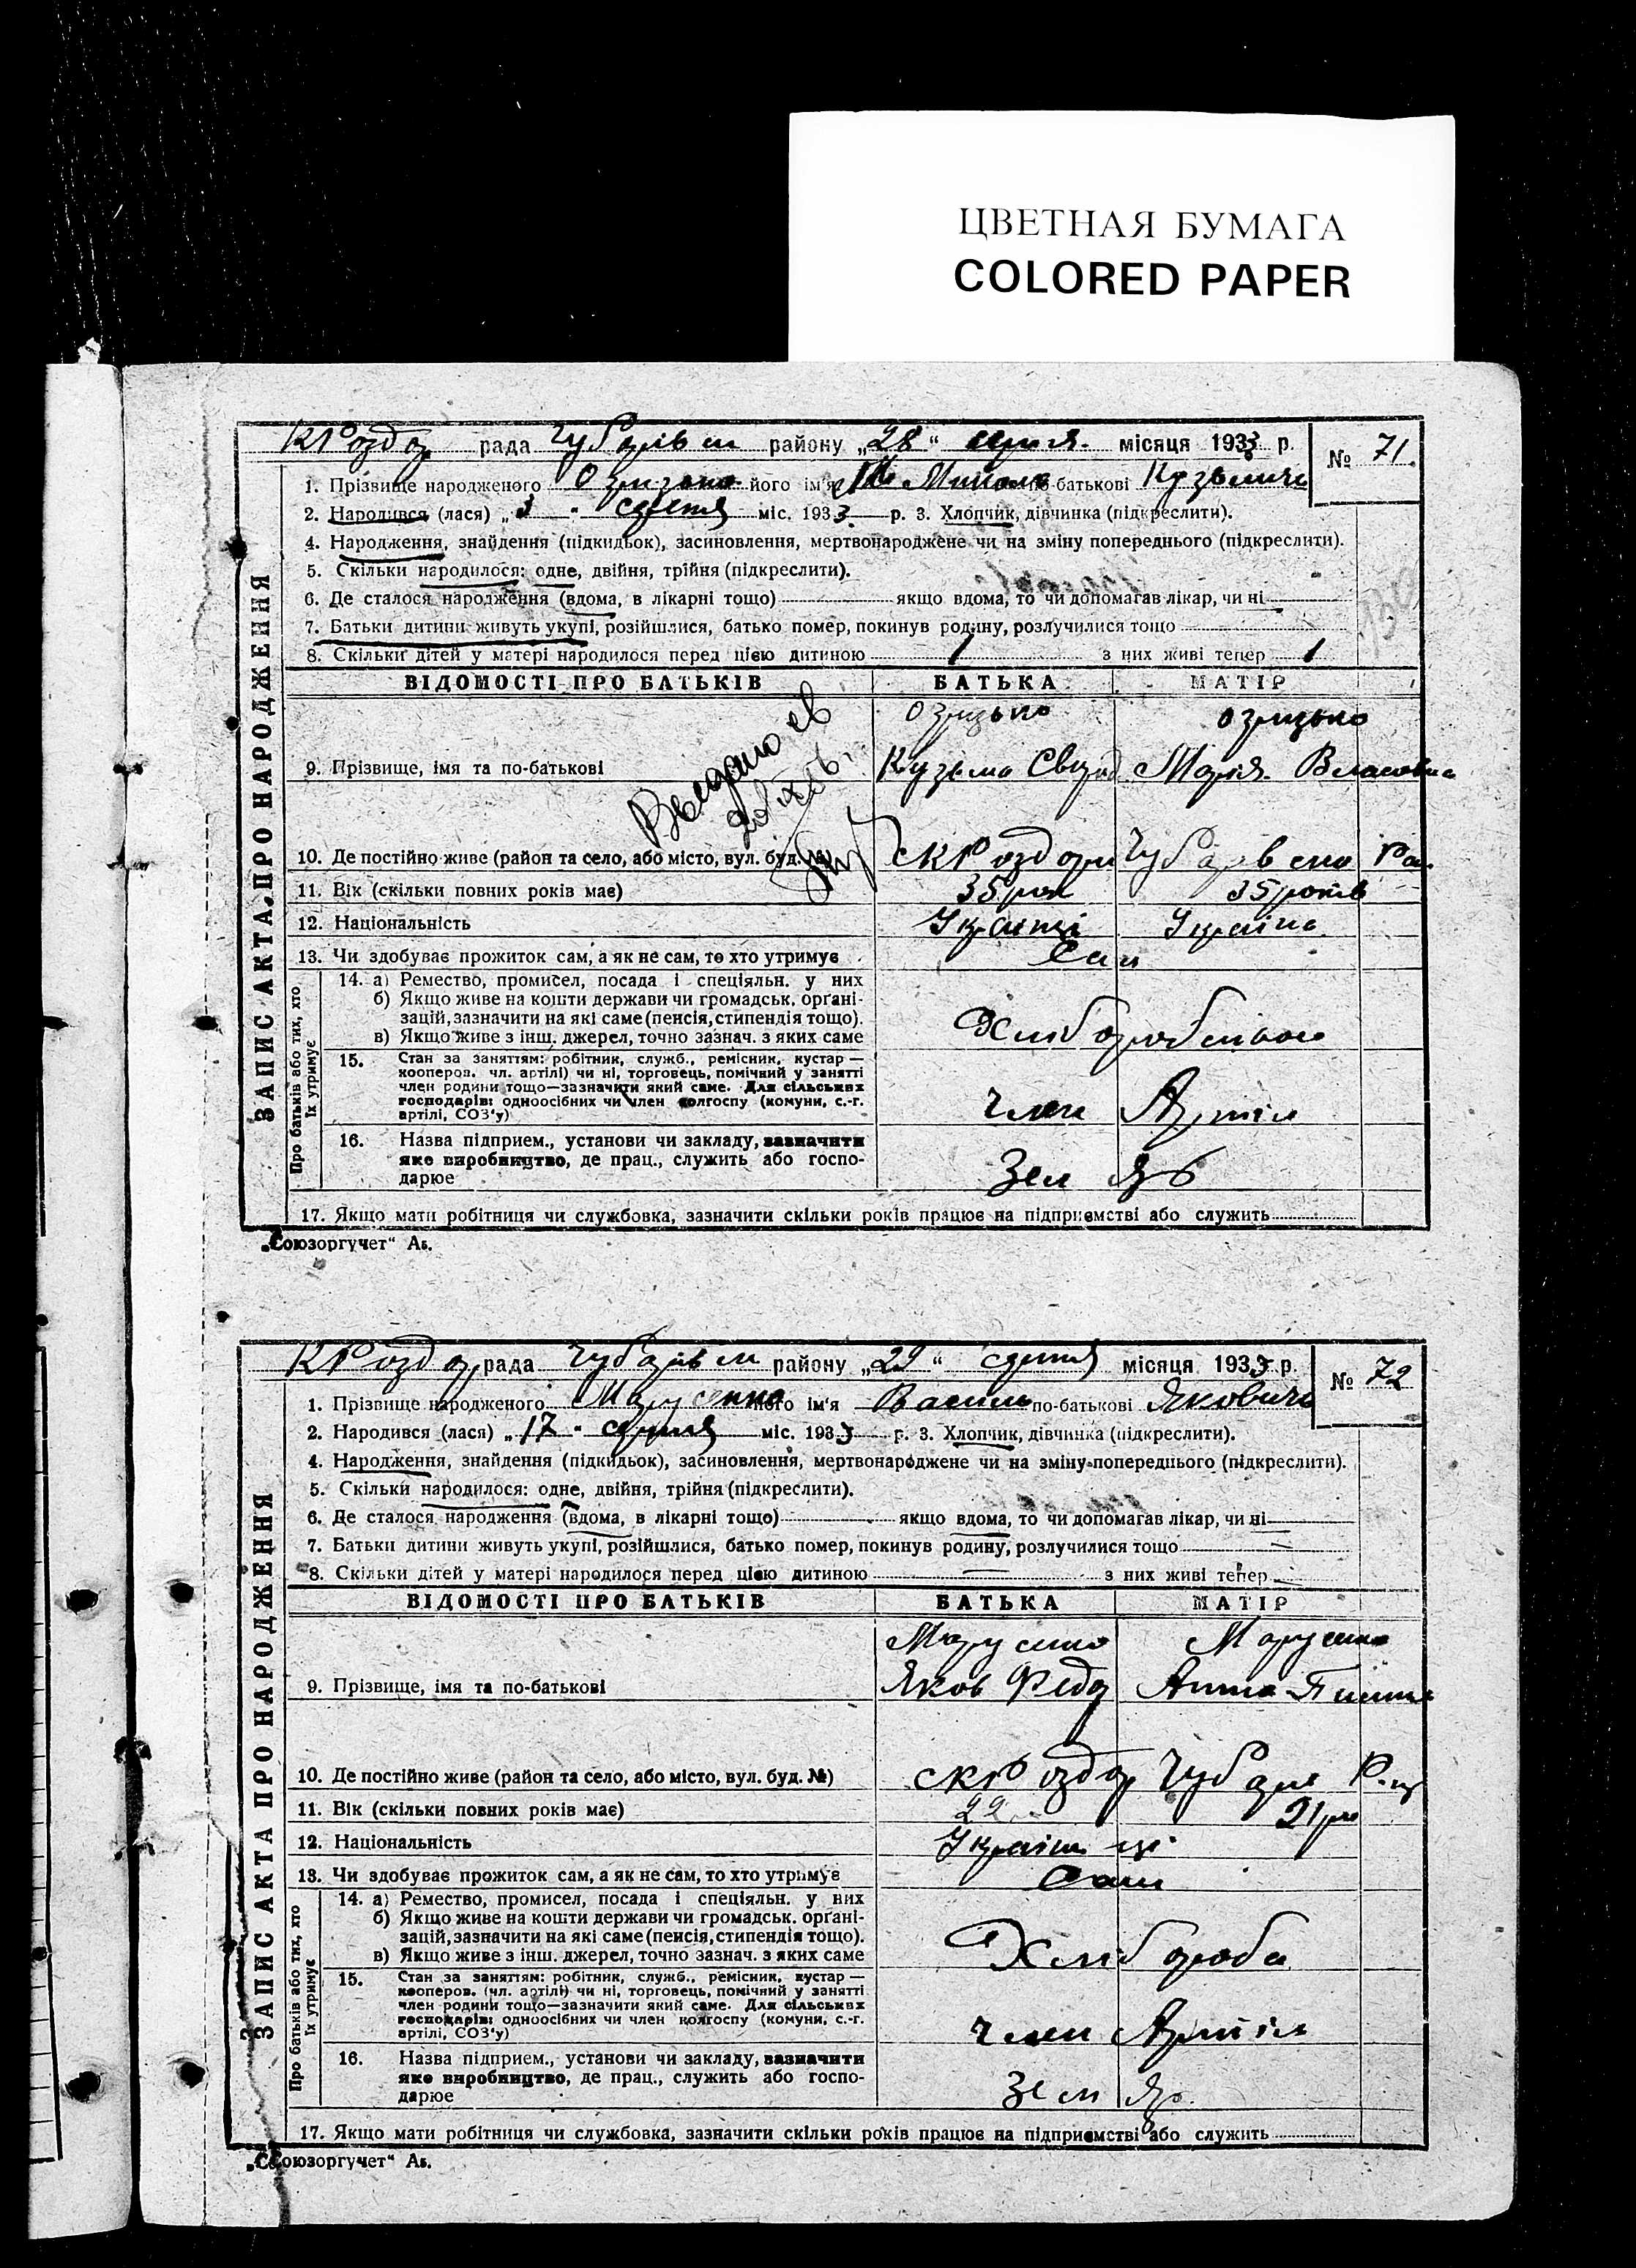 ЦВЕТНАЯ БУМАГА
COLORED PAPER
рада району „28“ місяця 1933 р.
№ 71.
ЗАПИС АКТА ПРО НАРОДЖЕННЯ
1. Прізвище народженого його ім'я Микола по-батькові Кузьмичь
2. Народився (лася) „3 " серпня міс. 1933. р. 3. Хлопчик, дівчинка (підкреслити).
4. Народження, знайдення (підкидьок), засиновлення, мертвонароджене чи на зміну попереднього (підкреслити).
5. Скільки народилося: одне, двійня, трійня (підкреслити).
6. Де сталося народження (вдома, в лікарні тощо) якщо вдома, то чи допомагав лікар, чи ні
7. Батьки дитини живуть укупі, розійшлися, батько помер, покинув родину, розлучилися тощо
8. Скільки дітей у матері народилося перед цією дитиною 1 з них живі тепер 1
ВІДОМОСТІ ПРО БАТЬКІВ БАТЬКА МАТІР
9. Прізвище, імя та по-батькові
Кузьма Марія Власовна
10. Де постійно живе (район та село, або місто, вул. буд. №)
11. Вік (скільки повних років має) 35 рок 35 років
12. Національність Українці Україна
13. Чи здобуває прожиток сам, а як не сам, то хто утримує Сам
Про батьків або тих, хто їх утримує
14. а) Ремество, промисел, посада і спеціяльн. у них
б) Якщо живе на кошти держави чи громадськ. орґані-
зацій, зазначити на які саме (пенсія, стипендія тощо).
в) Якщо живе з інш. джерел, точно зазнач. з яких саме
15. Стан за заняттям: робітник, служб., ремісник, кустар —
кооперов. чл. артілі) чи ні, торговець, помічний у занятті
член родини тощо—зазначити який саме. Для сільських
господарів: одноосібних чи член колгоспу (комуни, с.-г.
артілі, СОЗ'у) член Артіл
16. Назва підприєм., установи чи закладу, зазначити
яке виробництво, де прац., служить або госпо-
дарює Зем
17. Якщо мати робітниця чи службовка, зазначити скільки років працює на підприємстві або служить
„Союзоргучет“ Аб.
рада району „29“ серпня місяця 1933 р.
№ 72
ЗАПИС АКТА ПРО НАРОДЖЕННЯ
1. Прізвище народженого Марусенко його ім'я Василь по-батькові Яковичь
2. Народився (лася) „17 " серпня міс. 1933 р. 3. Хлопчик, дівчинка (підкреслити).
4. Народження, знайдення (підкидьок), засиновлення, мертвонароджене чи на зміну попереднього (підкреслити).
5. Скільки народилося: одне, двійня, трійня (підкреслити).
6. Де сталося народження (вдома, в лікарні тощо) якщо вдома, то чи допомагав лікар, чи ні
7. Батьки дитини живуть укупі, розійшлися, батько помер, покинув родину, розлучилися тощо
8. Скільки дітей у матері народилося перед цією дитиною — з них живі тепер —
ВІДОМОСТІ ПРО БАТЬКІВ БАТЬКА МАТІР
9. Прізвище, імя та по-батькові
Яков Федор Анна
10. Де постійно живе (район та село, або місто, вул. буд. №)
11. Вік (скільки повних років має) 22 21 рік
12. Національність Українці
13. Чи здобуває прожиток сам, а як не сам, то хто утримує Сами
Про батьків або тих, хто їх утримує
14. а) Ремество, промисел, посада і спеціяльн. у них
б) Якщо живе на кошти держави чи громадськ. орґані-
зацій, зазначити на які саме (пенсія, стипендія тощо).
в) Якщо живе з інш. джерел, точно зазнач. з яких саме Хлібороба
15. Стан за заняттям: робітник, служб., ремісник, кустар —
кооперов. (чл. артілі) чи ні, торговець, помічний у занятті
член родини тощо—зазначити який саме. Для сільських
господарів: одноосібних чи член колгоспу (комуни, с.-г.
артілі, СОЗ'у) член Артіл
16. Назва підприєм., установи чи закладу, зазначити
яке виробництво, де прац., служить або госпо-
дарює Зем
17. Якщо мати робітниця чи службовка, зазначити скільки років працює на підприємстві або служить
„Союзоргучет“ Аб.